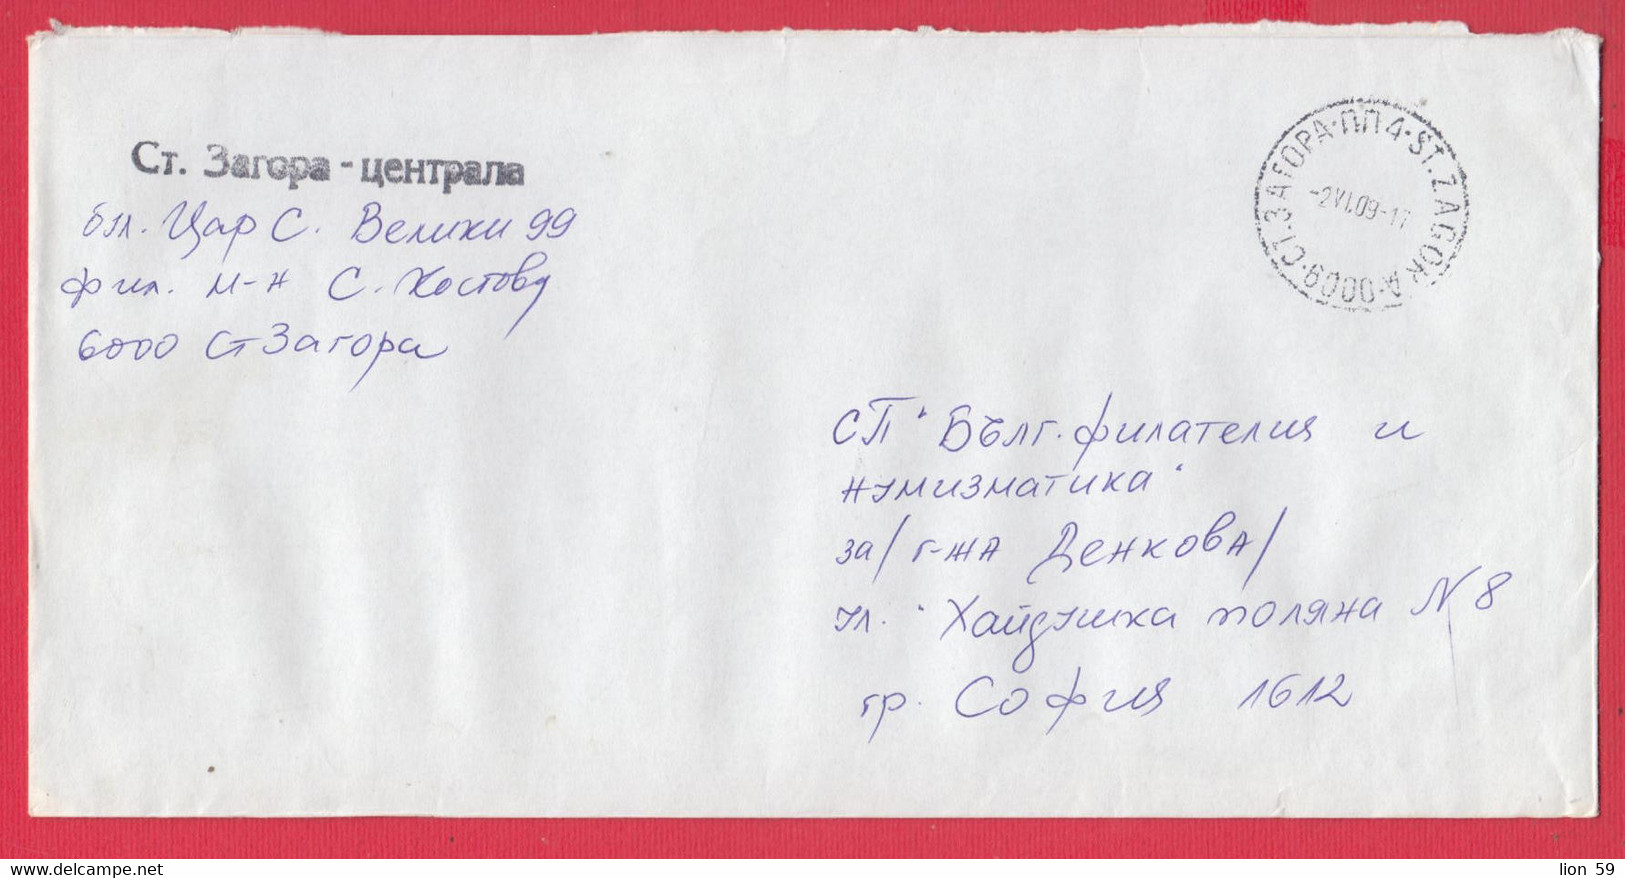 Ст. Загора - централа
бул. Цар С. Велики 99
фил. м-н С. Костова
6000 Ст Загора
СТ. ЗАГОРА · ПП 4 · ST. ZAGORA · 6000 ·
-2.VI.09-17
СП "Бълг. филателия и
нумизматика"
за / г-жа Денкова /
ул. "Хайдушка поляна N 8
гр. София 1612
lion 59